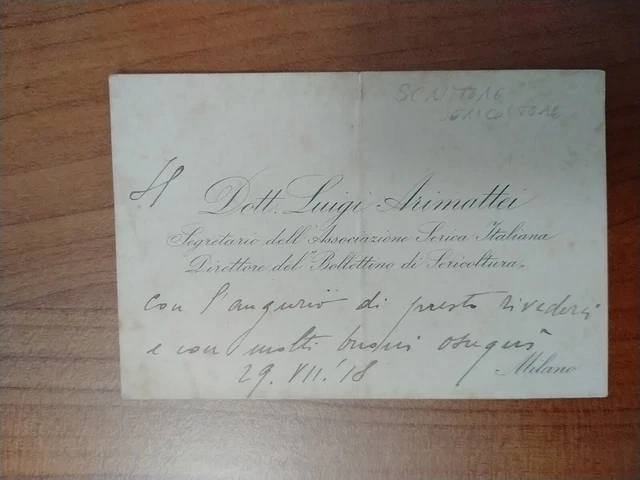 SCRITTORE
SERICOLTORE
Il
Dott. Luigi Arimattei
Segretario dell'Associazione Serica Italiana
Direttore del "Bollettino di Sericoltura„
con l'augurio di presto rivederci
e con molti buoni ossequi
29.VII.'18
Milano